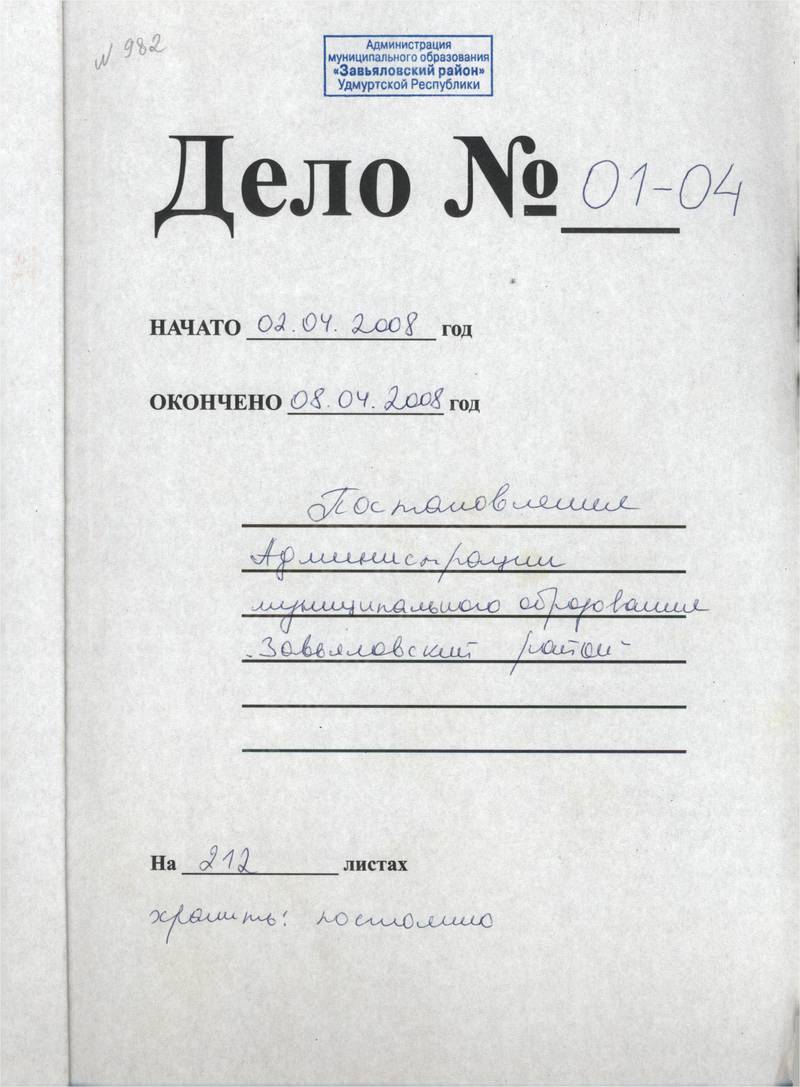 N 982
Администрация
муниципального образования
«Завьяловский район»
Удмуртской Республики
Дело № 01-04
НАЧАТО 02.04.2008 год
ОКОНЧЕНО 08.04.2008 год
Постановления
Администрации
муниципального образования
"Завьяловский район"
На 212 листах
хранить: постоянно